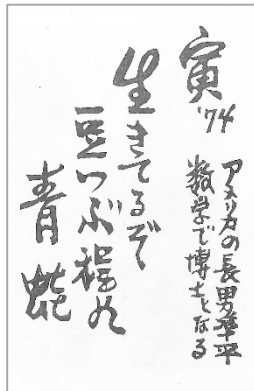 寅
'74
アメリカの長男準平
数学で博士となる
生きてるぞ
豆つぶ
青蛇